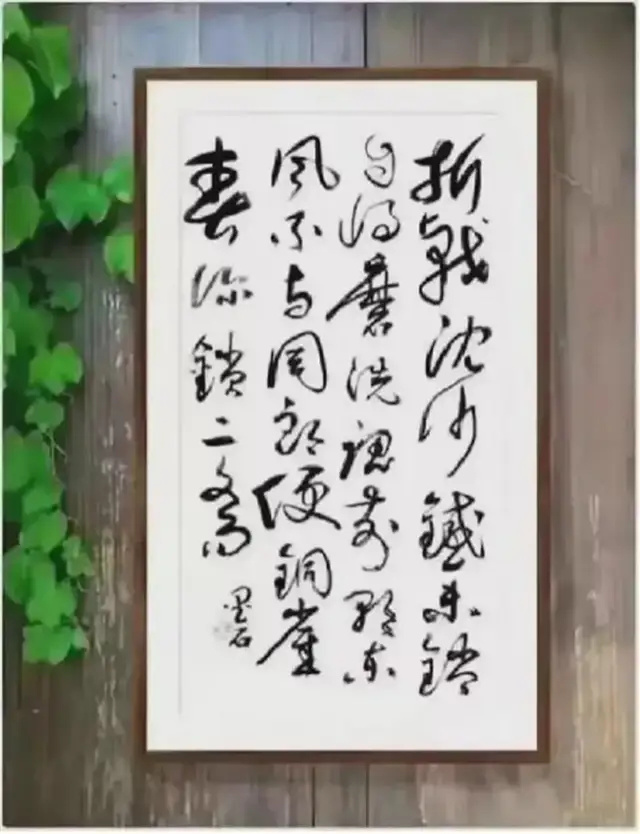 折戟沈沙鐵未銷
自將磨洗認前朝東
風不與周郎便銅雀
春深鎖二喬
墨石